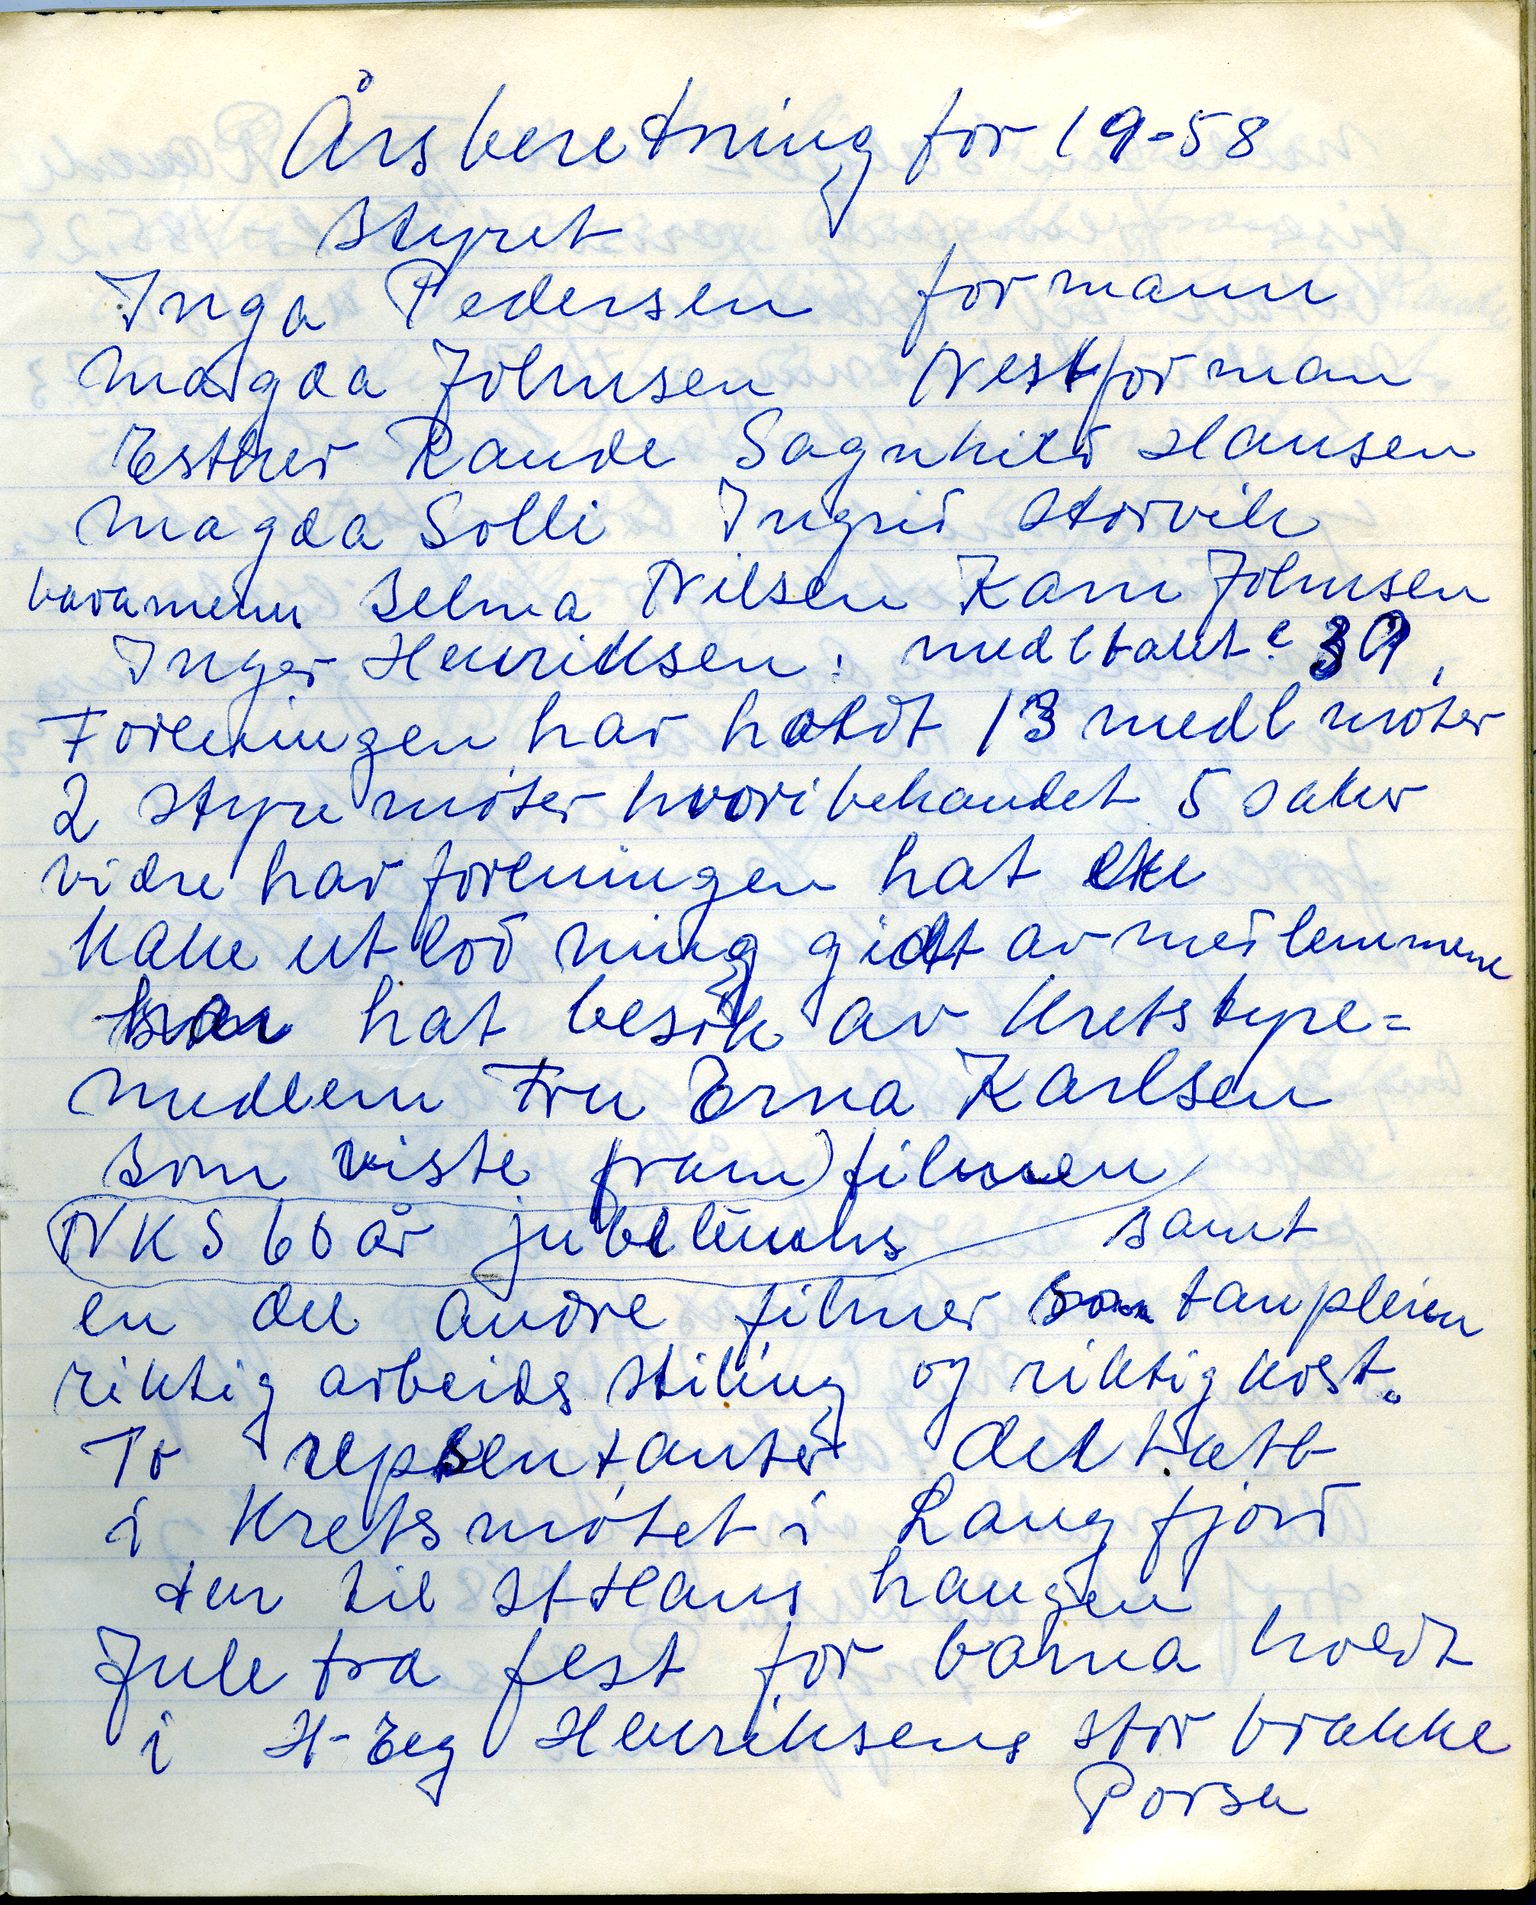 Årsberetning for 19-58
Styret
Inga Pedersen formann
Magda Johnsen Nestforman
Esther Raude Sagnhild Hansen
Magda Solli Ingrid Storvik
varamenn Selma Nilsen Karn Johnsen
Inger Henriksen: medltallet: 39,
Foreningen har holdt 13 medl møter
2 styre møter hvori behandet 5 saker
vidre har foreningen hat
kake utlodning gidt av medlemmene
har hat besøk av Kretstyre=
medlem Fru Erna Karlsen
som viste fram filmen
NKS 60 år jubeleums samt
en del andre filmer som tanpleien
riktig arbeids stiling og riktig kost.
To repsentanter deltatt
i Kretsmøtet i Langfjord
tur til St Hans haugen
Jule tra fest for barna holdt
i H-Eeg Henriksens stor brakke
Porsa